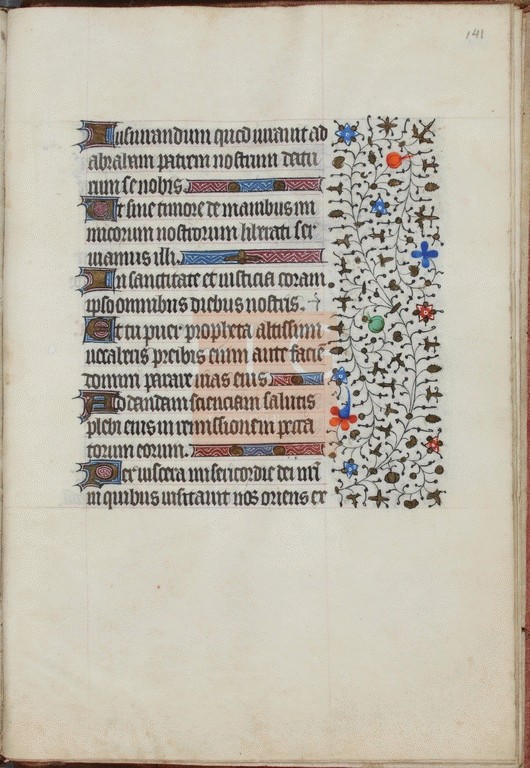 141
Iusiurandum quod iuravit ad
abraham patrem nostrum datu
rum se nobis.
Et sine timore de manibus ini
micorum nostrorum liberati ser
viamus illi.
In sanctitate et iusticia coram
ipso omnibus diebus nostris.
Et tu puer propheta altissimi
vocaberis preibis enim ante faciē
domini parare vias eius
Ad dandam scienciam salutis
plebi eius in remissionem pecca
torum eorum.
Per viscera misericordie dei nr̄i
in quibus visitavit nos oriens ex